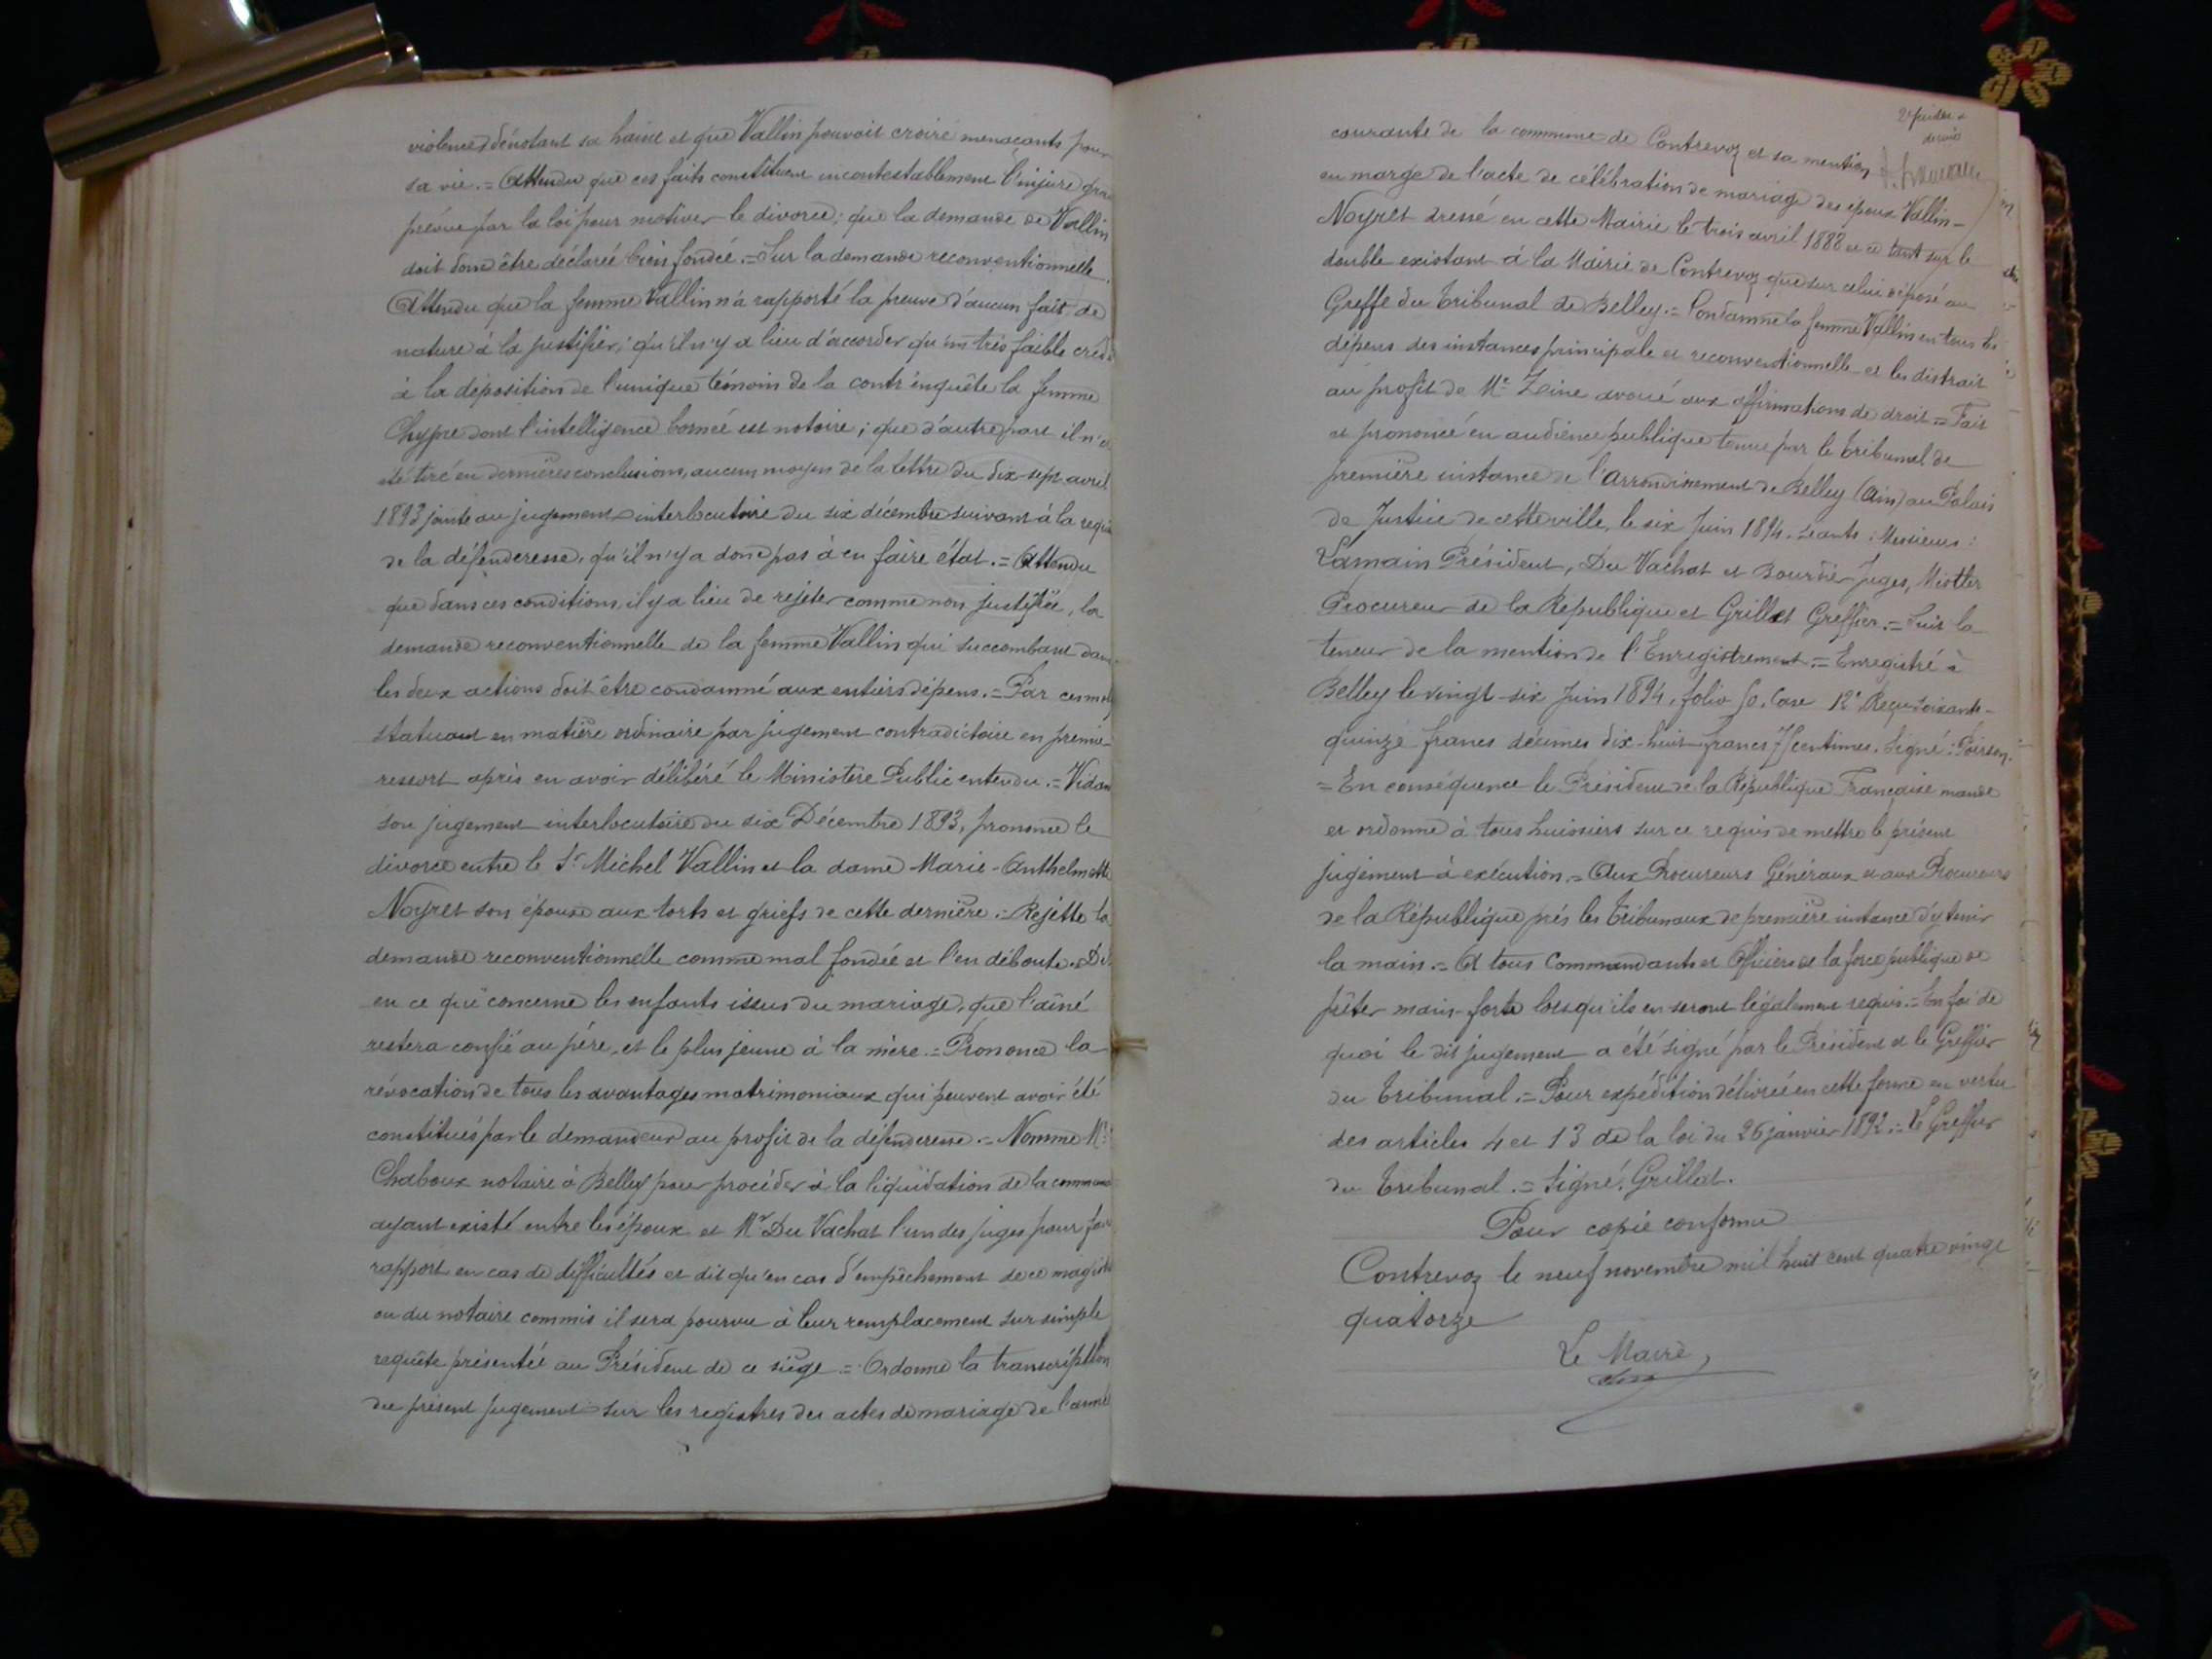 violences dénotant sa haine et que Vallin pouvait croire menaçants pour
sa vie. = Attendu que ces faits constituent incontestablement l'injure grave
prévue par la loi pour motiver le divorce; que la demande de Vallin
doit donc être déclarée bien fondée. = Sur la demande reconventionnelle.
Attendu que la femme Vallin n'a rapporté la preuve d'aucun fait de
nature à la justifier; qu'il n'y a lieu d'accorder qu'un très faible crédit
à la déposition de l'unique témoin de la contr'enquête la femme
Chypre dont l'intelligence bornée est notoire; que d'autre part il n'a
été tiré en dernières conclusions, aucun moyen de la lettre du dix-sept avril
1893 jointe au jugement interlocutoire du six décembre suivant à la requ
de la défenderesse, qu'il n'y a donc pas à en faire état. = Attendu
que dans ces conditions, il y a lieu de rejeter comme non justifiée, la
demande reconventionnelle de la femme Vallin qui succombant dans
les deux actions doit être condamné aux entiers dépens. = Par ces mo
statuant en matière ordinaire par jugement contradictoire en premier
ressort après en avoir délibéré le Ministère Public entendu. = Vidant
son jugement interlocutoire du six Décembre 1893, prononce le
divorce entre le Sr Michel Vallin et la dame Marie-Anthelmette
Noyret son épouse aux torts et griefs de cette dernière. = Rejette la
demande reconventionnelle comme mal fondée et l'en déboute. = Dit
en ce qui concerne les enfants issus du mariage, que l'aîné
restera confié au père, et le plus jeune à la mère. = Prononce la
révocation de tous les avantages matrimoniaux qui peuvent avoir été
constitués par le demandeur au profit de la défenderesse. = Nomme Me
Chaboux notaire à Belley pour procéder à la liquidation de la commun
ayant existé entre les époux et Mr Du Vachat l'un des juges pour faire
rapport en cas de difficultés et dit qu'en cas d'empêchement de ce magist
ou du notaire commis il sera pourvu à leur remplacement sur simple
requête présentée au Président de ce siège = Ordonne la transcription
du présent jugement sur les registres des actes de mariage de l'anné
courante de la commune de Contrevoz et sa mention
en marge de l'acte de célébration de mariage des époux Vallin-
Noyret dressé en cette Mairie le trois avril 1888 et ce tant sur le
double existant à la Mairie de Contrevoz que sur celui déposé au
Greffe du Tribunal de Belley. = Condamne la femme Vallin en tous les
dépens des instances principale et reconventionnelle et les distrait
au profit de Me Zeine avoué aux affirmations de droit = Fait
et prononcé en audience publique tenue par le tribunal de
première instance de l'Arrondissement de Belley (Ain) au Palais
de Justice de cette ville, le six Juin 1894. séants: Messieurs:
Lamain Président, Du Vachat et Bourdier Juges, Miottler
Procureur de la République et Grillet Greffier. = Suit la
teneur de la mention de l'Enregistrement. = Enregistré à
Belley le vingt-six Juin 1894, folio 50. Case 12e Reçu soixante-
quinze francs décimes dix-huit francs 75 centimes. Signé: Poirson.
= En conséquence le Président de la République Française mande
et ordonne à tous huissiers sur ce requis de mettre le présent
jugement à exécution. = Aux Procureurs Généraux et aux Procureurs
de la République près les Tribunaux de première instance d'y tenir
la main. = A tous Commandants et Officiers de la force publique de
prêter main-forte lorsqu'ils en seront légalement requis. = En foi de
quoi le dit jugement a été signé par le Président et le Greffier
du Tribunal. = Pour expédition délivrée en cette forme en vertu
des articles 4 et 13 de la loi du 26 janvier 1892. = Le Greffier
du Tribunal. = Signé: Grillet.
Pour copie conforme
Contrevoz le neuf novembre mil huit cent quatre vingt
quatorze
Le Maire,